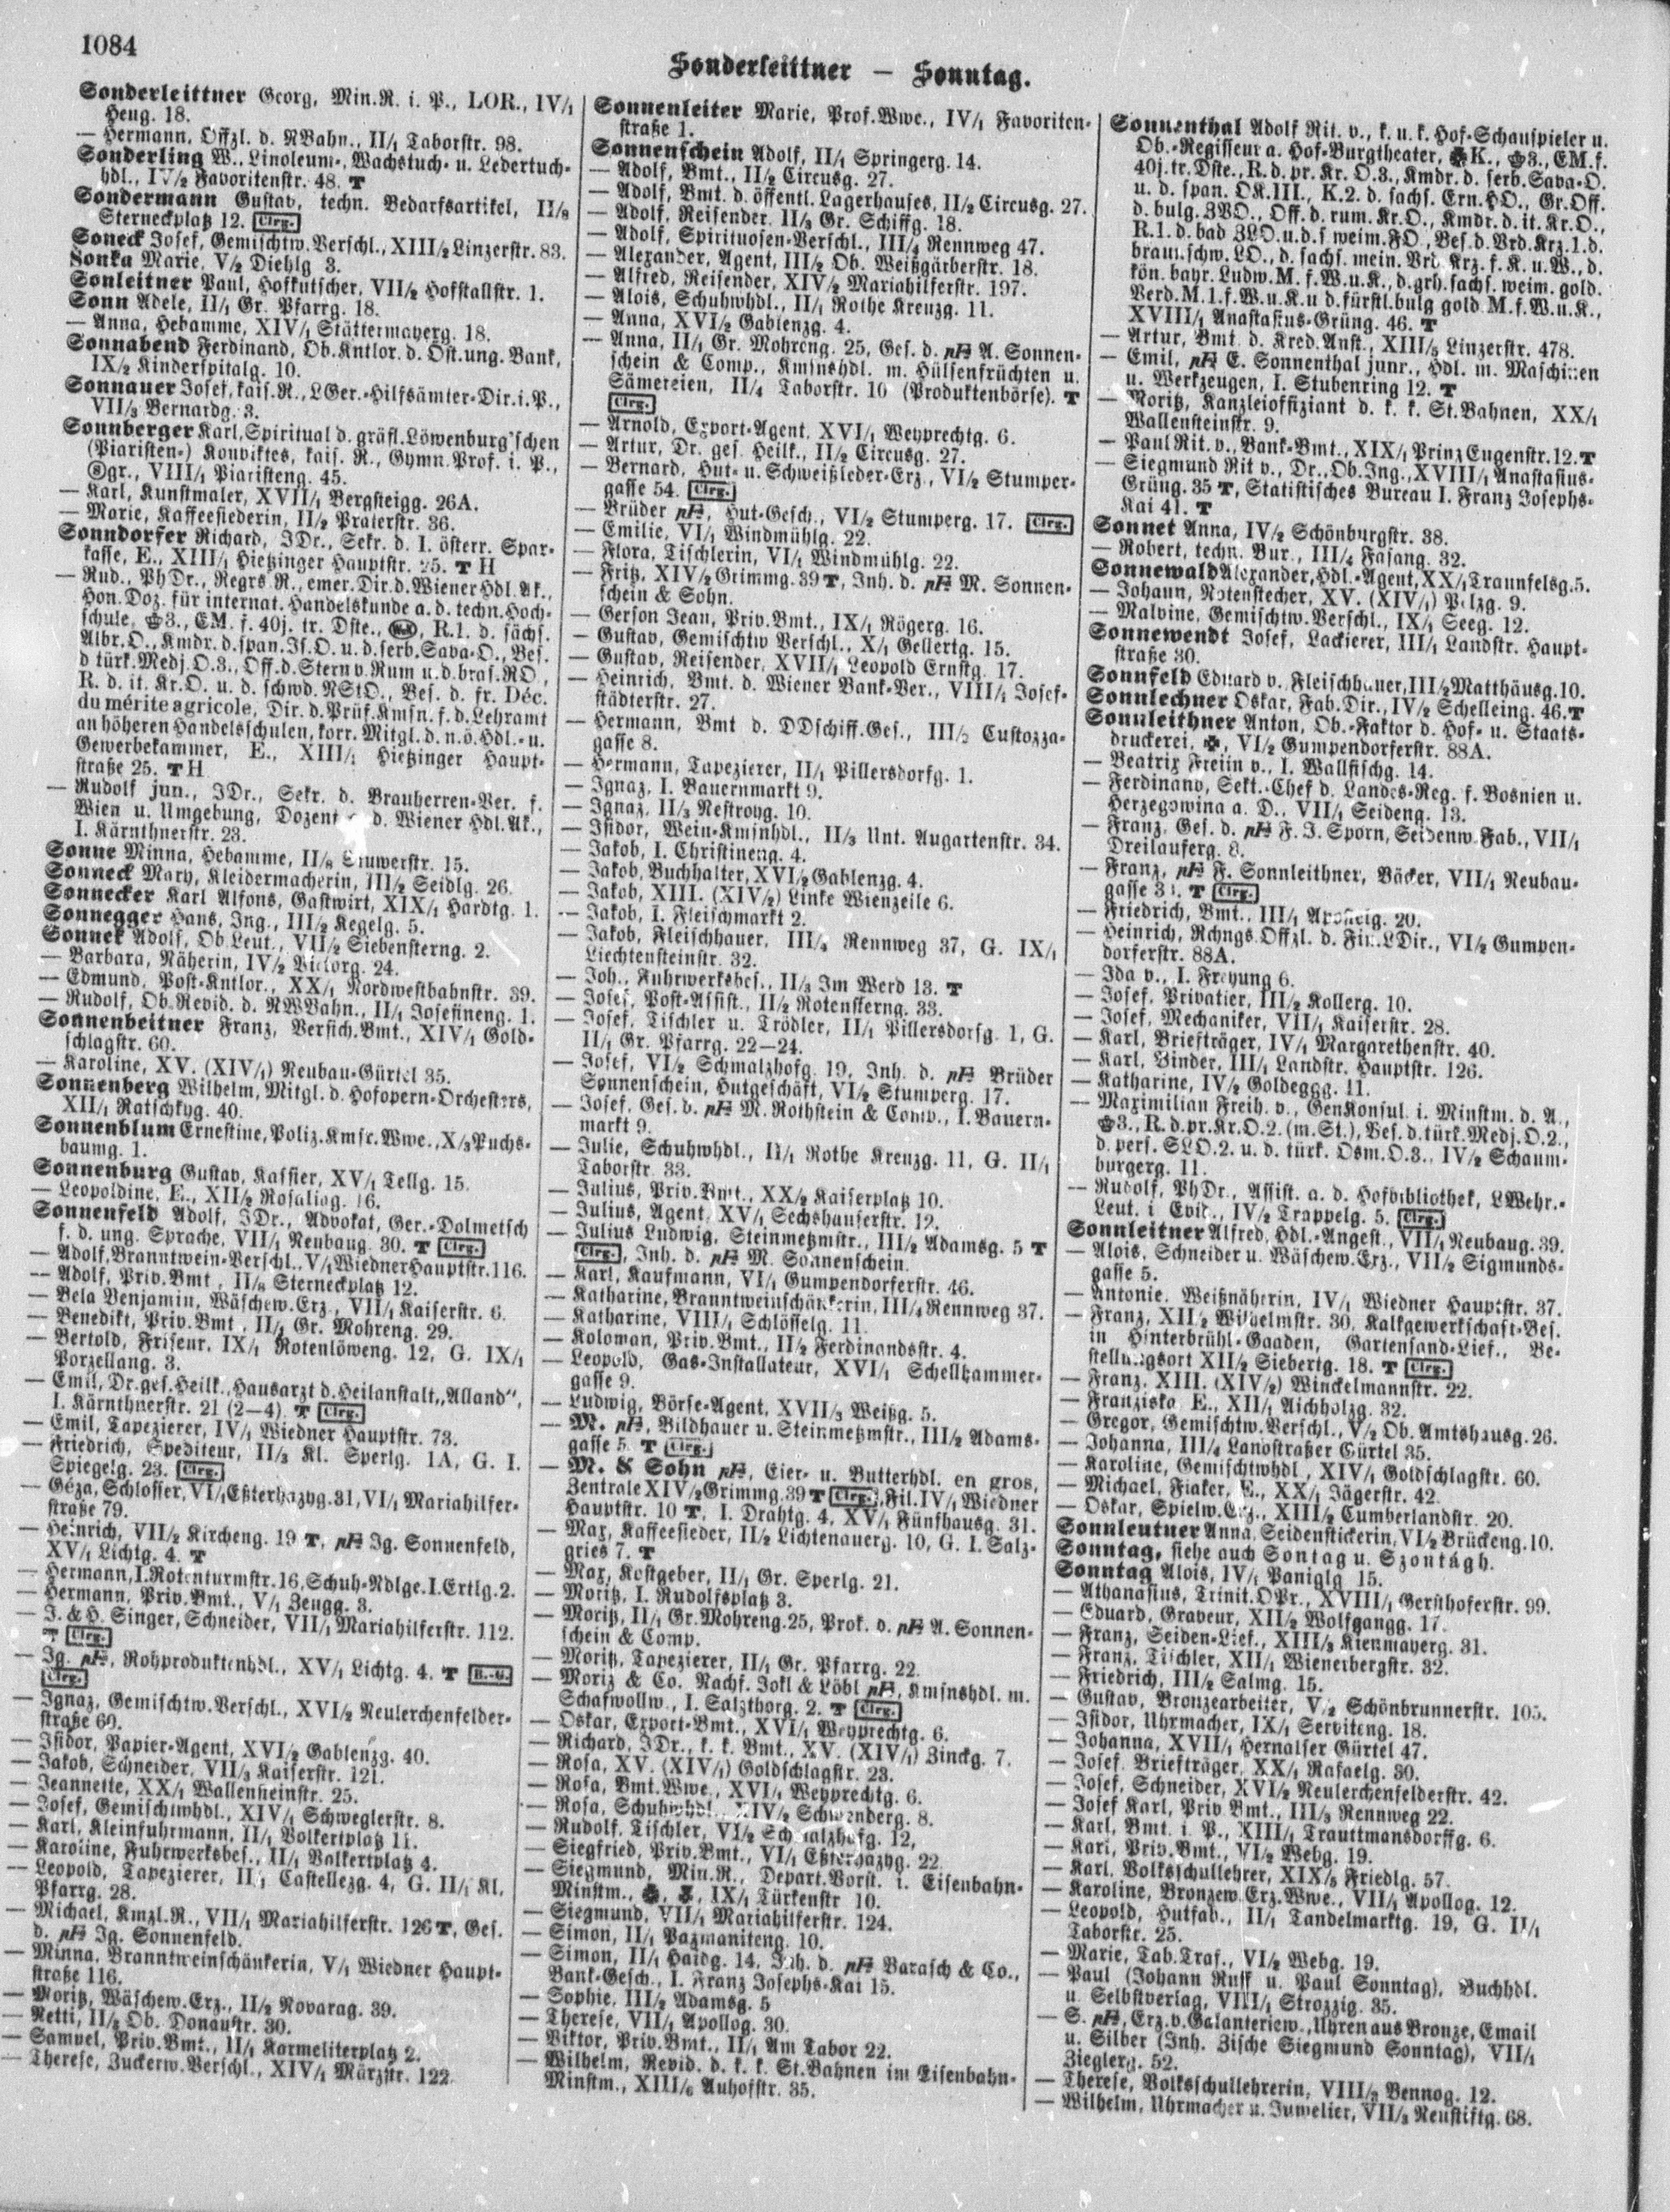 1084
Sonderleittner — Sonntag.
Sonderleittner Georg, Min.R. i. P., LOR., IV/1
Heug. 18.
— Hermann, Offzl. d. NBahn., II/1 Taborstr. 98.
Sonderling W., Linoleum-, Wachstuch- u. Ledertuch-
hdl., IV/2 Favoritenstr. 48. T
Sondermann Gustav, techn. Bedarfsartikel, II/8
Sterneckplatz 12. Clrg.
Soneck Josef, Gemischtw.Verschl., XIII/2 Linzerstr. 83.
Sonka Marie, V/2 Diehlg 3.
Sonleitner Paul, Hofkutscher, VII/2 Hofstallstr. 1.
Sonn Adele, II/1 Gr. Pfarrg. 18.
— Anna, Hebamme, XIV/1 Stättermayerg. 18.
Sonnabend Ferdinand, Ob.Kntlor. d. Öst.ung. Bank,
IX/2 Kinderspitalg. 10.
Sonnauer Josef, kais.R., LGer.-Hilfsämter-Dir.i.P.,
VII/3 Bernardg. 3.
Sonnberger Karl, Spiritual d. gräfl. Löwenburg'schen
(Piaristen-) Konviktes, kais. R., Gymn.Prof. i. P.,
gr., VIII/1 Piaristeng. 45.
— Karl, Kunstmaler, XVII/1 Bergsteigg. 26A.
— Marie, Kaffeesiederin, II/2 Praterstr. 36.
Sonndorfer Richard, JDr., Sekr. d. I. österr. Spar-
kasse, E., XIII/1 Hietzinger Hauptstr. 25. T H
— Rud., PhDr., Regrs R., emer.Dir.d.Wiener Hdl.Ak.,
Hon.Doz. für internat. Handelskunde a. d. techn. Hoch-
schule, 3., EM. f. 40j. tr. Dste., R.1. d. sächs.
Albr.O., Kmdr. d.span.Is.O. u. d.serb.Sava-O., Bes.
d türk.Medj.O.3., Off.d.Stern v.Rum u.d.bras.RO,
R. d. it. Kr.O. u. d. schwd. NStO., Bes. d. fr. Déc.
du mérite agricole, Dir. d. Prüf.Kmsn. f. d. Lehramt
an höheren Handelsschulen, korr. Mitgl. d. n.ö. Hdl.- u.
Gewerbekammer, E., XIII/1 Hietzinger Haupt-
straße 25. T H
— Rudolf jun., JDr., Sekr. d. Brauherren-Ver. f.
Wien u. Umgebung, Dozent d. Wiener Hdl.Ak.,
I. Kärnthnerstr. 23.
Sonne Minna, Hebamme, II/8 15.
Sonneck Mary, Kleidermacherin, III/2 Seidlg. 26.
Sonnecker Karl Alfons, Gastwirt, XIX/1 Hardtg. 1.
Sonnegger Hans, Ing., III/2 Kegelg. 5.
Sonnek Adolf, Ob.Leut., VII/2 Siebensterng. 2.
— Barbara, Näherin, IV/2 Viktorg. 24.
— Edmund, Post-Kntlor., XX/1 Nordwestbahnstr. 39.
— Rudolf, Ob.Revid. d. NWBahn., II/1 Josefineng. 1.
Sonnenbeitner Franz, Versich.Bmt., XIV/1 Gold-
schlagstr. 60.
— Karoline, XV. (XIV/1) Neubau-Gürtel 35.
Sonnenberg Wilhelm, Mitgl. d. Hofopern-Orchesters,
XII/1 Ratschkyg. 40.
Sonnenblum Ernestine, Poliz.Kmsr.Wwe., X/3 Puchs-
baumg. 1.
Sonnenburg Gustav, Kassier, XV/1 Tellg. 15.
— Leopoldine, E., XII/2 Rosaliag. 16.
Sonnenfeld Adolf, JDr., Advokat, Ger.-Dolmetsch
f. d. ung. Sprache, VII/1 Neubaug. 30. T Clrg.
— Adolf, Branntwein-Verschl., V/1 Wiedner Hauptstr. 116.
— Adolf, Priv.Bmt., II/8 Sterneckplatz 12.
— Bela Benjamin, Wäschew.Erz., VII/1 Kaiserstr. 6.
— Benedikt, Priv.Bmt., II/1 Gr. Mohreng. 29.
— Bertold, Friseur, IX/1 Rotenlöweng. 12, G. IX/1
Porzellang. 3.
— Emil, Dr.ges.Heilk., Hausarzt d. Heilanstalt „Alland",
I. Kärnthnerstr. 21 (2—4). T Clrg.
— Emil, Tapezierer, IV/1 Wiedner Hauptstr. 73.
— Friedrich, Spediteur, II/3 Kl. Sperlg. 1A, G. I.
Spiegelg. 23. Clrg.
— Géza, Schlosser, VI/1 Eßterhazyg. 31, VI/1 Mariahilfer-
straße 79.
— Heinrich, VII/2 Kircheng. 19 T, pH Ig. Sonnenfeld,
XV/1 Lichtg. 4. T
— Hermann, I. Rotenturmstr. 16, Schuh-Ndlge. I. Ertlg. 2.
— Hermann, Priv.Bmt., V/1 Zeugg. 3.
— J. & H. Singer, Schneider, VII/1 Mariahilferstr. 112.
T Clrg.
— Ig. pH, Rohproduktenhdl., XV/1 Lichtg. 4. T R.-G.
Clrg.
— Ignaz, Gemischtw.Verschl., XVI/2 Neulerchenfelder-
straße 69.
— Isidor, Papier-Agent, XVI/2 Gablenzg. 40.
— Jakob, Schneider, VII/3 Kaiserstr. 121.
— Jeannette, XX/1 Wallensteinstr. 25.
— Josef, Gemischtwhdl., XIV/1 Schweglerstr. 8.
— Karl, Kleinfuhrmann, II/1 Volkertplatz 11.
— Karoline, Fuhrwerksbes., II/1 Volkertplatz 4.
— Leopold, Tapezierer, II/1 Castellezg. 4, G. II/1 Kl.
Pfarrg. 28.
— Michael, Kmzl.R., VII/1 Mariahilferstr. 126 T, Ges.
d. pH Ig. Sonnenfeld.
— Minna, Branntweinschänkerin, V/1 Wiedner Haupt-
straße 116.
— Moritz, Wäschew.Erz., II/2 Novarag. 39.
— Netti, II/2 Ob. Donaustr. 30.
— Samuel, Priv.Bmt., II/1 Karmeliterplatz 2.
— Therese, Zuckerw.Verschl., XIV/1 Märzstr. 122.
Sonnenleiter Marie, Prof.Wwe., IV/1 Favoriten-
straße 1.
Sonnenschein Adolf, II/1 Springerg. 14.
— Adolf, Bmt., II/2 Circusg. 27.
— Adolf, Bmt. d. öffentl. Lagerhauses, II/2 Circusg. 27.
— Adolf, Reisender, II/3 Gr. Schiffg. 18.
— Adolf, Spirituosen-Verschl., III/4 Rennweg 47.
— Alexander, Agent, III/2 Ob. Weißgärberstr. 18.
— Alfred, Reisender, XIV/2 Mariahilferstr. 197.
— Alois, Schuhwhdl., II/1 Rothe Kreuzg. 11.
— Anna, XVI/2 Gablenzg. 4.
— Anna, II/1 Gr. Mohreng. 25, Ges. d. pH A. Sonnen-
schein & Comp., Kmsnshdl. m. Hülsenfrüchten u.
Sämereien, II/4 Taborstr. 10 (Produktenbörse). T
Clrg.
— Arnold, Export-Agent, XVI/1 Weyprechtg. 6.
— Artur, Dr. ges. Heilk., II/2 Circusg. 27.
— Bernard, Hut- u. Schweißleder-Erz., VI/2 Stumper-
gasse 54. Clrg.
— Brüder pH, Hut-Gesch., VI/2 Stumperg. 17. Clrg.
— Emilie, VI/1 Windmühlg. 22.
— Flora, Tischlerin, VI/1 Windmühlg. 22.
— Fritz, XIV/2 Grimmg. 39 T, Inh. d. pH M. Sonnen-
schein & Sohn.
— Gerson Jean, Priv.Bmt., IX/1 Rögerg. 16.
— Gustav, Gemischtw Verschl., X/1 Gellertg. 15.
— Gustav, Reisender, XVII/1 Leopold Ernstg. 17.
— Heinrich, Bmt. d. Wiener Bank-Ver., VIII/1 Josef-
städterstr. 27.
— Hermann, Bmt d. DDschiff.Ges., III/2 Custozza-
gasse 8.
— Hermann, Tapezierer, II/1 Pillersdorfg. 1.
— Ignaz, I. Bauernmarkt 9.
— Ignaz, II/3 Nestroyg. 10.
— Isidor, Wein-Kmsnhdl., II/3 Unt. Augartenstr. 34.
— Jakob, I. Christineng. 4.
— Jakob, Buchhalter, XVI/2 Gablenzg. 4.
— Jakob, XIII. (XIV/2) Linke Wienzeile 6.
— Jakob, I. Fleischmarkt 2.
— Jakob, Fleischhauer, III/4 Rennweg 37, G. IX/1
Liechtensteinstr. 32.
— Joh., Fuhrwerksbes., II/3 Im Werd 13. T
— Josef, Post-Assist., II/2 Rotensterng. 33.
— Josef, Tischler u. Trödler, II/1 Pillersdorfg. 1, G.
II/1 Gr. Pfarrg. 22—24.
— Josef, VI/2 Schmalzhofg. 19, Inh. d. pH Brüder
Sonnenschein, Hutgeschäft, VI/2 Stumperg. 17.
— Josef, Ges. d. pH M. Rothstein & Comp., I. Bauern-
markt 9.
— Julie, Schuhwhdl., II/1 Rothe Kreuzg. 11, G. II/1
Taborstr. 33.
— Julius, Priv.Bmt., XX/2 Kaiserplatz 10.
— Julius, Agent, XV/1 Sechshauserstr. 12.
— Julius Ludwig, Steinmetzmstr., III/2 Adamsg. 5 T
Clrg., Inh. d. pH M. Sonnenschein.
— Karl, Kaufmann, VI/1 Gumpendorferstr. 46.
— Katharine, Branntweinschänkerin, III/4 Rennweg 37.
— Katharine, VIII/1 Schlösselg. 11.
— Koloman, Priv.Bmt., II/2 Ferdinandsstr. 4.
— Leopold, Gas-Installateur, XVI/1 Schellhammer-
gasse 9.
— Ludwig, Börse-Agent, XVII/3 Weißg. 5.
— M. pH, Bildhauer u. Steinmetzmstr., III/2 Adams-
gasse 5. T Clrg.
— M. & Sohn pH, Eier- u. Butterhdl. en gros,
Zentrale XIV/2 Grimmg. 39 T Clrg., Fil. IV/1 Wiedner
Hauptstr. 10 T, I. Drahtg. 4, XV/1 Fünfhausg. 31.
— Max, Kaffeesieder, II/2 Lichtenauerg. 10, G. I. Salz-
gries 7. T
— Max, Kostgeber, II/1 Gr. Sperlg. 21.
— Moritz, I. Rudolfsplatz 3.
— Moritz, II/1 Gr. Mohreng. 25, Prok. d. pH A. Sonnen-
schein & Comp.
— Moritz, Tapezierer, II/1 Gr. Pfarrg. 22.
— Moriz & Co. Nachf. Jokl & Löbl pH, Kmsnshdl. m.
Schafwollw., I. Salzthorg. 2. T Clrg.
— Oskar, Export-Bmt., XVI/1 Weyprechtg. 6.
— Richard, JDr., k. k. Bmt., XV. (XIV/1) Zinckg. 7.
— Rosa, XV. (XIV/1) Goldschlagstr. 23.
— Rosa, Bmt.Wwe., XVI/1 Weyprechtg. 6.
— Rosa, Schuhwhdl., XIV/2 Schwenderg. 8.
— Rudolf, Tischler, VI/2 Schmalzhofg. 12,
— Siegfried, Priv.Bmt., VI/1 Eßterhazyg. 22.
— Siegmund, Min.R., Depart.Vorst. i. Eisenbahn-
Minstm., IX/1 Türkenstr 10.
— Siegmund, VII/1 Mariahilferstr. 124.
— Simon, II/1 Pazmaniteng. 10.
— Simon, II/1 Haidg. 14, Inh. d. pH Barasch & Co.,
Bank-Gesch., I. Franz Josephs-Kai 15.
— Sophie, III/2 Adamsg. 5
— Therese, VII/1 Apollog. 30.
— Viktor, Priv.Bmt., II/1 Am Tabor 22.
— Wilhelm, Revid. d. k. k. St.Bahnen im Eisenbahn-
Minstm., XIII/6 Auhofstr. 35.
Sonnenthal Adolf Rit. v., k. u. k. Hof-Schauspieler u.
Ob.-Regisseur a. Hof-Burgtheater, K., 3., EM. f.
40j. tr. Dste., R. d. pr. Kr. O.3., Kmdr. d. serb. Sava-O.
u. d. span. OK.III., K.2. d. sachs. Ern.HO., Gr.Off.
d. bulg. ZVO., Off. d. rum. Kr.O., Kmdr. d. it. Kr.O.,
R.1. d. bad ZLO.u.d.s weim.FO., Bes.d.Vrd.Krz.1.d.
braunschw. LO., d. sachs. mein. Vrd. Krz. f. K. u. W., d.
kön. bayr. Ludw. M. f. W. u. K., d. grh. sachs. weim. gold.
Verd.M.1.f.W.u.K.u d.fürstl.bulg gold.M.f.W.u.K.,
XVIII/1 Anastasius-Grüng. 46. T
— Artur, Bmt. d. Kred.Anst., XIII/5 Linzerstr. 478.
— Emil, pH E. Sonnenthal junr., Hdl. m. Maschinen
u. Werkzeugen, I. Stubenring 12. T
— Moritz, Kanzleioffiziant d. k. k. St.Bahnen, XX/1
Wallensteinstr. 9.
— Paul Rit. v., Bank-Bmt., XIX/1 Prinz Eugenstr. 12. T
— Siegmund Rit v., Dr., Ob.Ing., XVIII/1 Anastasius-
Grüng. 35 T, Statistisches Bureau I. Franz Josephs-
Kai 41. T
Sonnet Anna, IV/2 Schönburgstr. 38.
— Robert, techn. Bur., III/4 Fasang. 32.
Sonnewald Alexander, Hdl.-Agent, XX/1 Traunfelsg. 5.
— Johann, Notenstecher, XV. (XIV/1) Pelzg. 9.
— Malvine, Gemischtw.Verschl., IX/1 Seeg. 12.
Sonnewendt Josef, Lackierer, III/1 Landstr. Haupt-
straße 30.
Sonnfeld Eduard v. Fleischhauer, III/2 Matthäusg. 10.
Sonnlechner Oskar, Fab.Dir., IV/2 Schelleing. 46. T
Sonnleithner Anton, Ob.-Faktor d. Hof- u. Staats-
druckerei, VI/2 Gumpendorferstr. 88A.
— Beatrix Freiin v., I. Wallfischg. 14.
— Ferdinand, Sekt.-Chef d. Landes-Reg. f. Bosnien u.
Herzegowina a. D., VII/1 Seideng. 13.
— Franz, Ges. d. pH F. J. Sporn, Seidenw.Fab., VII/1
Dreilauferg. 8.
— Franz, pH F. Sonnleithner, Bäcker, VII/1 Neubau-
gasse T Clrg.
— Friedrich, Bmt., III/1 20.
— Heinrich, Rchngs.Offzl. d. Fin.LDir., VI/2 Gumpen-
dorferstr. 88A.
— Ida v., I. Freyung 6.
— Josef, Privatier, III/2 Kollerg. 10.
— Josef, Mechaniker, VII/1 Kaiserstr. 28.
— Karl, Briefträger, IV/1 Margarethenstr. 40.
— Karl, Binder, III/1 Landstr. Hauptstr. 126.
— Katharine, IV/2 Goldeggg. 11.
— Maximilian Freih. v., GenKonsul i. Minstm. d. A.,
3., R. d.pr.Kr.O.2. (m.St.), Bes. d.türk.Medj.O.2.,
d. pers. SLO.2. u. d. türk. Osm.O.3., IV/2 Schaum-
burgerg. 11.
— Rudolf, PhDr., Assist. a. d. Hofbibliothek, LWehr.-
Leut. i Evid., IV/2 Trappelg. 5. Clrg.
Sonnleitner Alfred, Hdl.-Angest., VII/1 Neubaug. 39.
— Alois, Schneider u. Wäschew.Erz., VII/2 Sigmunds-
gasse 5.
— Antonie, Weißnäherin, IV/1 Wiedner Hauptstr. 37.
— Franz, XII/2 Wilhelmstr. 30, Kalkgewerkschaft-Bes.
in Hinterbrühl-Gaaden, Gartensand-Lief., Be-
stellungsort XII/2 Siebertg. 18. T Clrg.
— Franz, XIII. (XIV/2) Winckelmannstr. 22.
— Franziska E., XII/1 Aichholzg. 32.
— Gregor, Gemischtw.Verschl., V/2 Ob. Amtshausg. 26.
— Johanna, III/4 Landstraßer Gürtel 35.
— Karoline, Gemischtwhdl., XIV/1 Goldschlagstr. 60.
— Michael, Fiaker, E., XX/1 Jägerstr. 42.
— Oskar, Spielw.Erz., XIII/2 Cumberlandstr. 20.
Sonnleutner Anna, Seidenstickerin, VI/2 Brückeng. 10.
Sonntag, siehe auch Sontag u. Szontágh.
Sonntag Alois, IV/1 Paniglg 15.
— Athanasius, Trinit.OPr., XVIII/1 Gersthoferstr. 99.
— Eduard, Graveur, XII/2 Wolfgangg. 17.
— Franz, Seiden-Lief., XIII/3 Kienmayerg. 31.
— Franz, Tischler, XII/1 Wienerbergstr. 32.
— Friedrich, III/2 Salmg. 15.
— Gustav, Bronzearbeiter, V/2 Schönbrunnerstr. 105.
— Isidor, Uhrmacher, IX/1 Serviteng. 18.
— Johanna, XVII/1 Hernalser Gürtel 47.
— Josef, Briefträger, XX/1 Rafaelg. 30.
— Josef, Schneider, XVI/2 Neulerchenfelderstr. 42.
— Josef Karl, Priv Bmt., III/3 Rennweg 22.
— Karl, Bmt. i. P., XIII/1 Trauttmansdorffg. 6.
— Karl, Priv.Bmt., VI/2 Webg. 19.
— Karl, Volksschullehrer, XIX/5 Friedlg. 57.
— Karoline, Bronzew.Erz.Wwe., VII/1 Apollog. 12.
— Leopold, Hutfab., II/1 Tandelmarktg. 19, G. II/1
Taborstr. 25.
— Marie, Tab.Traf., VI/2 Webg. 19.
— Paul (Johann Ruß u. Paul Sonntag), Buchhdl.
u. Selbstverlag, VIII/1 Strozzig. 35.
— S. pH, Erz.v.Galanteriew., Uhren aus Bronze, Email
u. Silber (Inh. Zische Siegmund Sonntag), VII/1
Zieglerg. 52.
— Therese, Volksschullehrerin, VIII/2 Bennog. 12.
— Wilhelm, Uhrmacher u. Juwelier, VII/3 Neustiftg. 68.